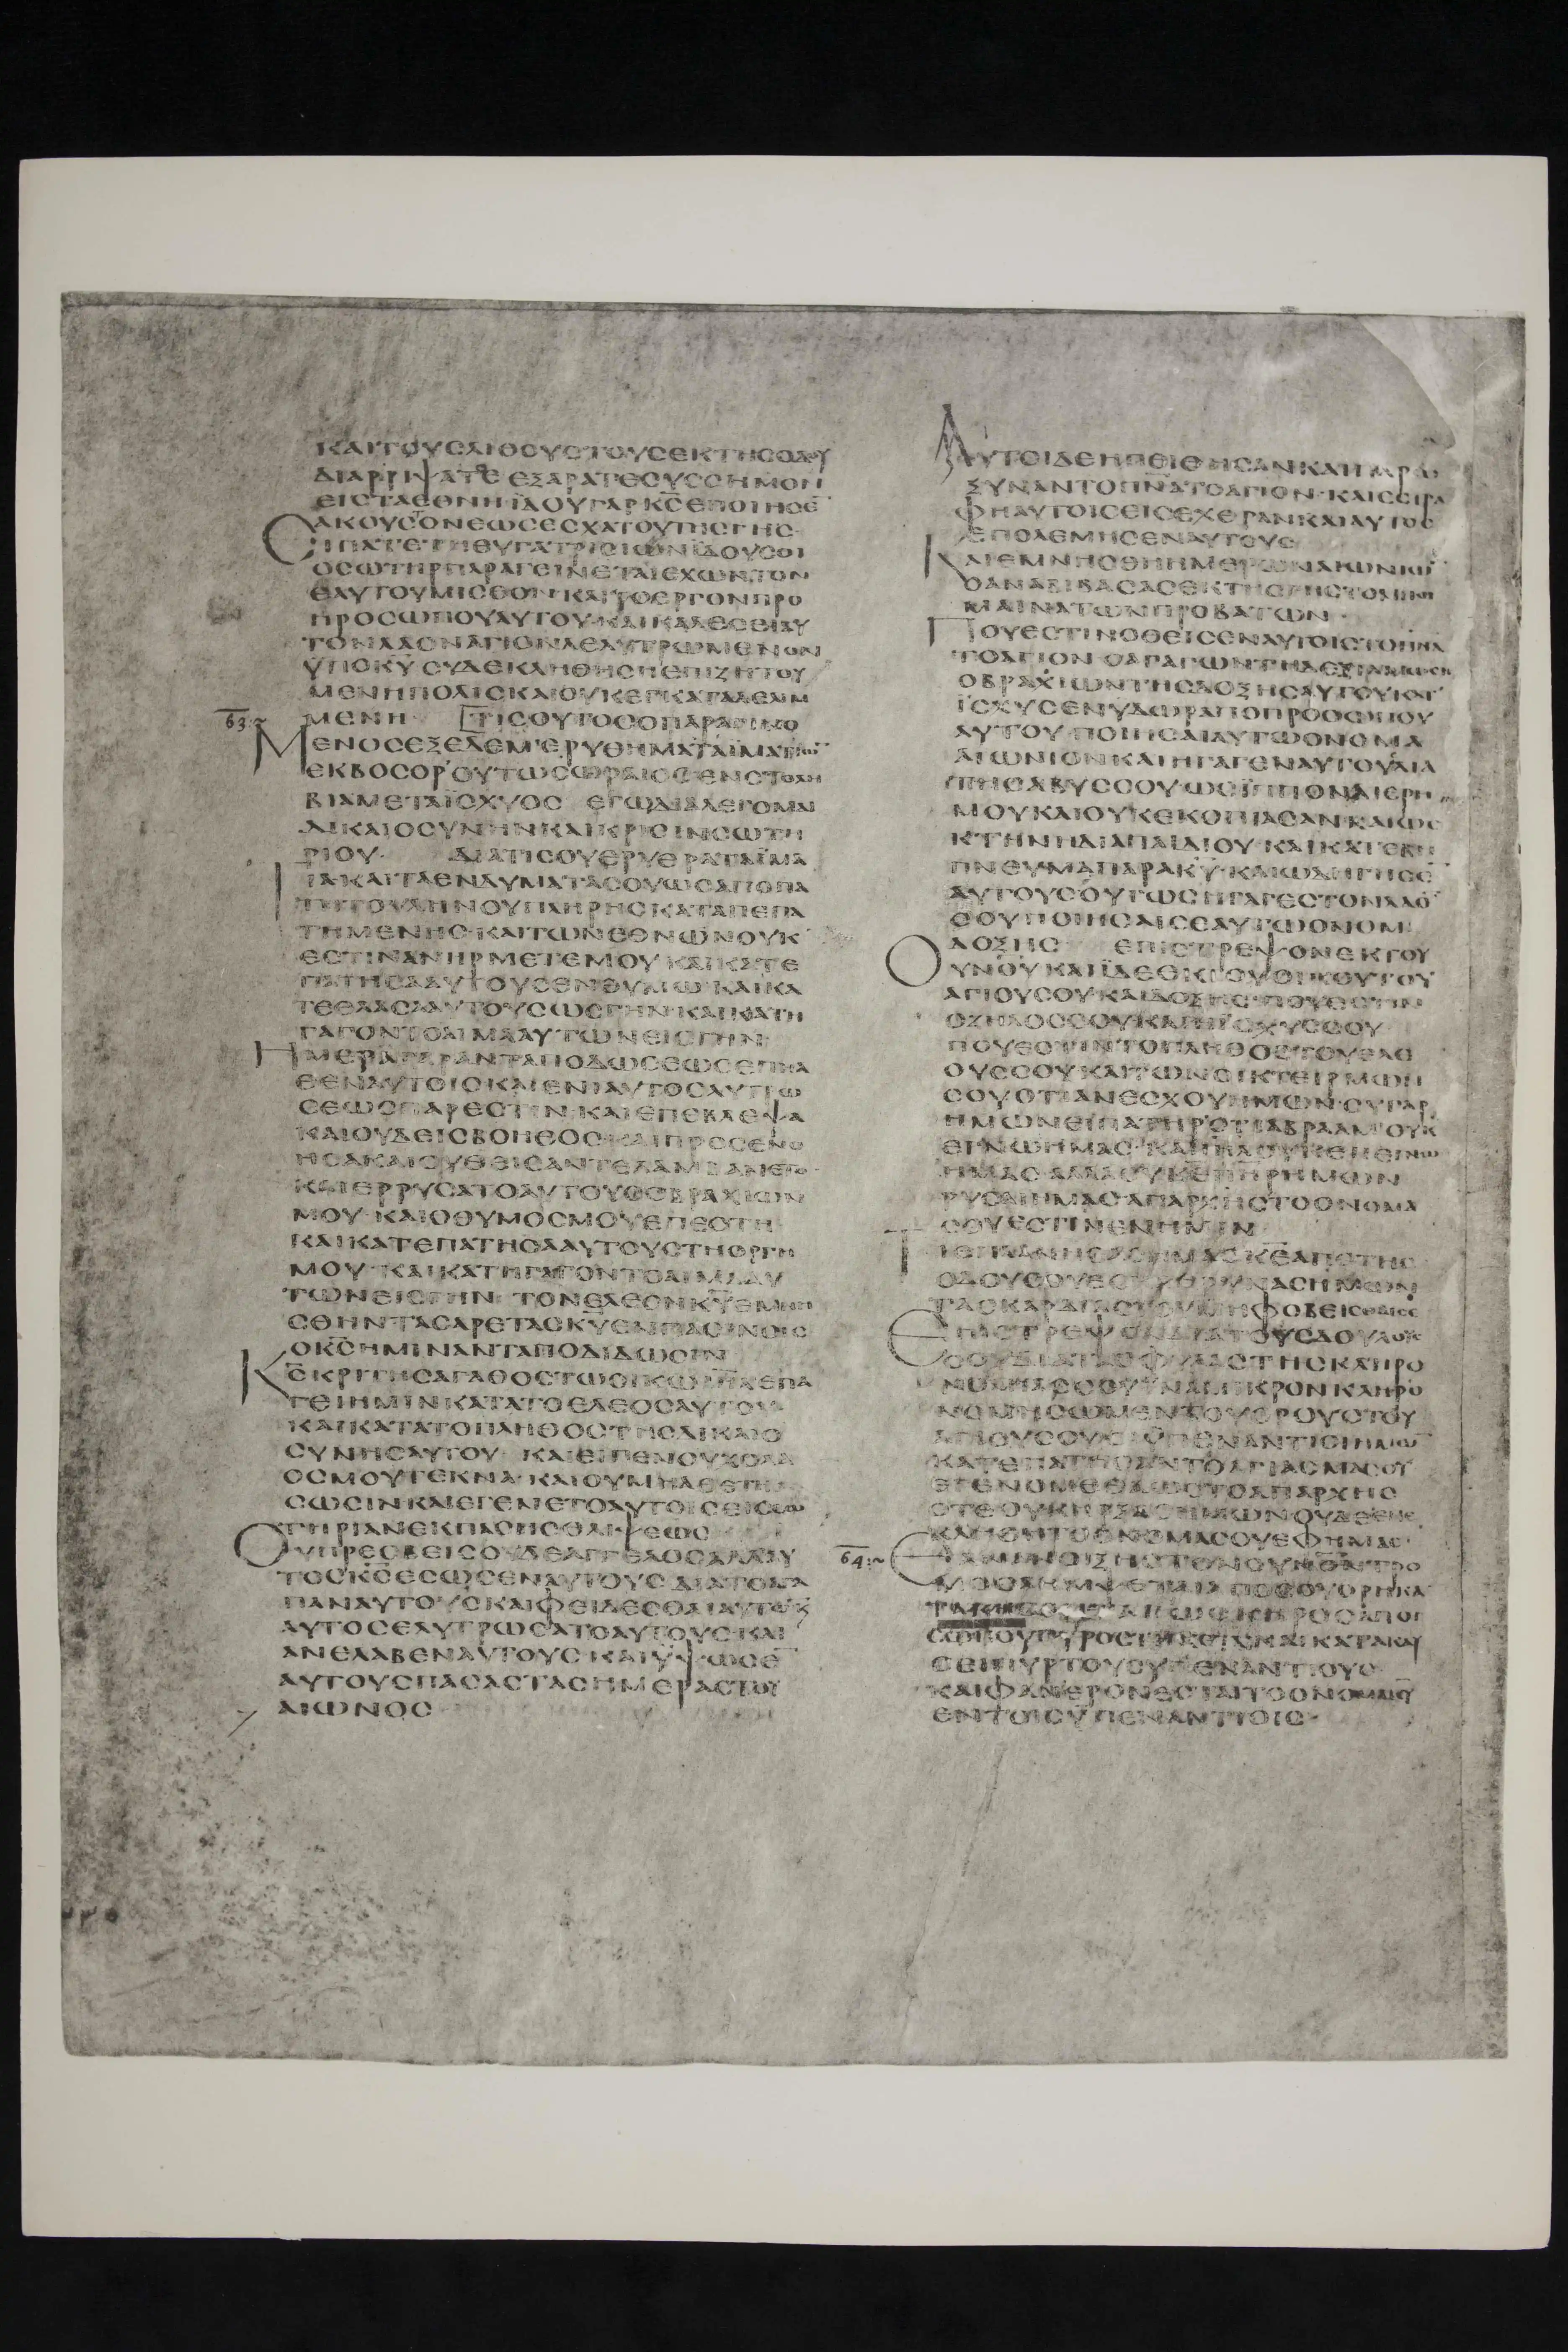 ΚΑΙΤΟΥCΛΙΘΟΥCΤΟΥCΕΚΤΗCΟΔΟΥ
ΔΙΑΡΡΙΨΑΤΕ ΕΞΑΡΑΤΕCΥCCΗΜΟΝ
ΕΙCΤΑΕΘΝΗ ΪΔΟΥΓΑΡΚ̅C̅ΕΠΟΙΗCΕ̅
ΑΚΟΥCΤΟΝΕΩCΕCΧΑΤΟΥΤΗCΓΗC·
ΕΙΠΑΤΕΤΗΘΥΓΑΤΡΙCΙΩΝΪΔΟΥCΟΙ
ΟCΩΤΗΡΠΑΡΑΓΕΙΝΕΤΑΙΕΧΩΝΤΟΝ
ΕΑΥΤΟΥΜΙCΘΟΝ·ΚΑΙΤΟΕΡΓΟΝΠΡΟ
ΠΡΟCΩΠΟΥΑΥΤΟΥ·ΚΑΙΚΑΛΕCΕΙΑΥ
ΤΟΝΛΑΟΝΑΓΙΟΝΛΕΛΥΤΡΩΜΕΝΟΝ
ΫΠΟΚ̅Υ̅ CΥΔΕΚΛΗΘΗCΗΕΠΙΖΗΤΟΥ
ΜΕΝΗΠΟΛΙCΚΑΙΟΥΚΕΓΚΑΤΑΛΕΛΙΜ
63 ΜΕΝΗ ΤΙCΟΥΤΟCΟΠΑΡΑΓΙΝΟ
ΜΕΝΟCΕΞΕΔΕΜ·ΕΡΥΘΗΜΑΤΑΪΜΑΤΙΩ̅
ΕΚΒΟCΟΡ·ΟΥΤΩCΩΡΑΙΟCΕΝCΤΟΛΗ
ΒΙΑΜΕΤΑΪCΧΥΟC ΕΓΩΔΙΑΛΕΓΟΜΑΙ
ΔΙΚΑΙΟCΥΝΗΝΚΑΙΚΡΙCΙΝCΩΤΗ
ΡΙΟΥ· ΔΙΑΤΙCΟΥΕΡΥΘΡΑΤΑΪΜΑ
ΤΙΑΚΑΙΤΑΕΝΔΥΜΑΤΑCΟΥΩCΑΠΟΠΑ
ΤΗΤΟΥΛΗΝΟΥΠΛΗΡΗCΚΑΤΑΠΕΠΑ
ΤΗΜΕΝΗC·ΚΑΙΤΩΝΕΘΝΩΝΟΥΚ
ΕCΤΙΝΑΝΗΡΜΕΤΕΜΟΥ ΚΑΙΚΑΤΕ
ΠΑΤΗCΑΑΥΤΟΥCΕΝΘΥΜΩ ΚΑΙΚΑ
ΤΕΘΛΑCΑΑΥΤΟΥCΩCΓΗΝ·ΚΑΙΚΑΤΗ
ΓΑΓΟΝΤΟΑΙΜΑΑΥΤΩΝΕΙCΓΗΝ·
ΗΜΕΡΑΓΑΡΑΝΤΑΠΟΔΩCΕΩCΕΠΗΛ
ΘΕΝΑΥΤΟΙCΚΑΙΕΝΙΑΥΤΟCΛΥΤΡΩ
CΕΩCΠΑΡΕCΤΙΝ·ΚΑΙΕΠΕΒΛΕΨΑ
ΚΑΙΟΥΔΕΙCΒΟΗΘΟC·ΚΑΙΠΡΟCΕΝΟ
ΗCΑΚΑΙΟΥΘΕΙCΑΝΤΕΛΑΜΒΑΝΕΤΟ·
ΚΑΙΕΡΡΥCΑΤΟΑΥΤΟΥCΟΒΡΑΧΙΩΝ
ΜΟΥ·ΚΑΙΟΘΥΜΟCΜΟΥΕΠΕCΤΗ
ΚΑΙΚΑΤΕΠΑΤΗCΑΑΥΤΟΥCΤΗΟΡΓΗ
ΜΟΥ·ΚΑΙΚΑΤΗΓΑΓΟΝΤΟΑΙΜΑΑΥ
ΤΩΝΕΙCΓΗΝ· ΤΟΝΕΛΕΟΝΚ̅Υ̅ΕΜΝΗ
CΘΗΝΤΑCΑΡΕΤΑCΚ̅Υ̅ΕΝΠΑCΙΝΟΙC
ΟΚ̅C̅ΗΜΙΝΑΝΤΑΠΟΔΙΔΩCΙΝ
Κ̅C̅ΚΡΙΤΗCΑΓΑΘΟCΤΩΟΙΚΩΙ̅Η̅Λ̅ΕΠΑ
ΓΕΙΗΜΙΝΚΑΤΑΤΟΕΛΕΟCΑΥΤΟΥ·
ΚΑΙΚΑΤΑΤΟΠΛΗΘΟCΤΗCΔΙΚΑΙΟ
CΥΝΗCΑΥΤΟΥ· ΚΑΙΕΙΠΕΝΟΥΧΟΛΑ
ΟCΜΟΥΤΕΚΝΑ·ΚΑΙΟΥΜΗΑΘΕΤΗ
CΩCΙΝΚΑΙΕΓΕΝΕΤΟΑΥΤΟΙCΕΙCCΩ
ΤΗΡΙΑΝΕΚΠΑCΗCΘΛΙΨΕΩC
ΟΥΠΡΕCΒΕΙCΟΥΔΕΑΓΓΕΛΟCΑΛΛΑΥ
ΤΟCΚ̅C̅ΕCΩCΕΝΑΥΤΟΥC ΔΙΑΤΟΑΓΑ
ΠΑΝΑΥΤΟΥCΚΑΙΦΕΙΔΕCΘΑΙΑΥΤΩ̅
ΑΥΤΟCΕΛΥΤΡΩCΑΤΟΑΥΤΟΥC·ΚΑΙ
ΑΝΕΛΑΒΕΝΑΥΤΟΥC·ΚΑΙΫΨΩCΕ̅
ΑΥΤΟΥCΠΑCΑCΤΑCΗΜΕΡΑCΤΟΥ
ΑΙΩΝΟC
ΑΥΤΟΙΔΕΗΠΕΙΘΗCΑΝΚΑΙΠΑΡΩ
ΞΥΝΑΝΤΟΠ̅Ν̅ΑΤΟΑΓΙΟΝ·ΚΑΙΕCΤΡΑ
ΦΗΑΥΤΟΙCΕΙCΕΧΘΡΑΝΚΑΙΑΥΤΟC
ΕΠΟΛΕΜΗCΕΝΑΥΤΟΥC
ΚΑΙΕΜΝΗCΘΗΗΜΕΡΩΝΑΙΩΝΙΩ̅
ΟΑΝΑΒΙΒΑCΑCΕΚΤΗCΓΗCΤΟΝΠΟΙ
ΜΑΙΝΑΤΩΝΠΡΟΒΑΤΩΝ·
ΠΟΥΕCΤΙΝΟΘΕΙCΕΝΑΥΤΟΙCΤΟΠ̅Ν̅Α
ΤΟΑΓΙΟΝ
ΟΒΡΑΧΙΩΝΤΗCΔΟΞΗCΑΥΤΟΥΚΑΤ
ΪCΧΥCΕΝΥΔΩΡΑΠΟΠΡΟCΩΠΟΥ
ΑΥΤΟΥ·ΠΟΙΗCΑΙΑΥΤΩΟΝΟΜΑ
ΑΙΩΝΙΟΝΚΑΙΗΓΑΓΕΝΑΥΤΟΥCΔΙΑ
ΤΗCΑΒΥCCΟΥΩCΪΠΠΟΝΔΙΕΡΗ
ΜΟΥΚΑΙΟΥΚΕΚΟΠΙΑCΑΝΚΑΙΩC
ΚΤΗΝΗΔΙΑΠΑΙΔΙΟΥ·ΚΑΙΚΑΤΕΒΗ
ΠΝΕΥΜΑΠΑΡΑΚ̅Υ̅·ΚΑΙΩΔΗΓΗCΕ̅
ΑΥΤΟΥCΟΥΤΩCΗΓΑΓΕCΤΟΝΛΑΟ̅
CΟΥΠΟΙΗCΑΙCΕΑΥΤΩΟΝΟΜ
ΔΟΞΗC· ΕΠΙCΤΡΕΨΟΝΕΚΤΟΥ
ΟΥΝΟΥΚΑΙΪΔΕΕΚΤΟΥΟΙΚΟΥΤΟΥ
ΑΓΙΟΥCΟΥΚΑΙΔΟΞΗC·ΠΟΥΕCΤΙΝ
ΟΖΗΛΟCCΟΥΚΑΙΗΪCΧΥCCΟΥ
ΠΟΥΕCΤΙΝΤΟΠΛΗΘΟCΤΟΥΕΛΕ
ΟΥCCΟΥΚΑΙΤΩΝΟΙΚΤΕΙΡΜΩΝ
CΟΥΟΤΙΑΝΕCΧΟΥΗΜΩΝ·CΥΓΑΡ
ΗΜΩΝΕΙΠΑΤΗΡ·ΟΤΙΑΒΡΑΑΜΟΥΚ
ΕΓΝΩΗΜΑC·ΚΑΙΙ̅Η̅Λ̅ΟΥΚΕΠΕΓΝΩ
ΗΜΑC·ΑΛΛΑCΥΚ̅Ε̅Π̅Η̅Ρ̅ΗΜΩΝ
ΡΥCΑΙΗΜΑCΑΠΑΡΧΗCΤΟΟΝΟΜΑ
CΟΥΕCΤΙΝΕΝΗΜΙΝ
ΤΙΕΠΛΑΝΗCΑCΗΜΑCΚ̅Ε̅ΑΠΟΤΗC
ΟΔΟΥCΟΥ
ΤΑCΚΑΡΔΙΑC
ΕΠΙCΤΡΕΨΟΝΔΙΑΤΟΥCΔΟΥΛΟΥC
CΟΥΔΙΑΤΑCΦΥΛΑCΤΗCΚΛΗΡΟ
ΝΟΜΙΑCCΟΥΪΝΑΜΙΚΡΟΝΚΛΗΡΟ
ΝΟΜΗCΩΜΕΝΤΟΥΟΡΟΥCΤΟΥ
ΑΓΙΟΥCΟΥ·ΟΙΫΠΕΝΑΝΤΙΟΙΗΜΩ̅
ΚΑΤΕΠΑΤΗCΑΝΤΟΑΓΙΑCΜΑCΟΥ
ΕΓΕΝΟΜΕΘΑΩCΤΟΑΠΑΡΧΗC
ΟΤΕΟΥΚΗΡΞΑCΗΜΩΝΟΥΔΕΕΠΕ
ΚΛΗΘΗΤΟΟΝΟΜΑCΟΥΕΦΗΜΑC·
64 ΕΑΝΑΝΟΙΞΗCΤΟΝΟΥΝΟΝΤΡΟ
ΜΟC
CΩΠΟΥΠΥΡΟCΤΗΚΕΤΑΙΚΑΙΚΑΤΑΚΑΥ
CΕΙΠΥΡΤΟΥCΫΠΕΝΑΝΤΙΟΥC
ΚΑΙΦΑΝΕΡΟΝΕCΤΑΙΤΟΟΝΟΜΑΚ̅Υ̅
ΕΝΤΟΙCΫΠΕΝΑΝΤΙΟΙC·